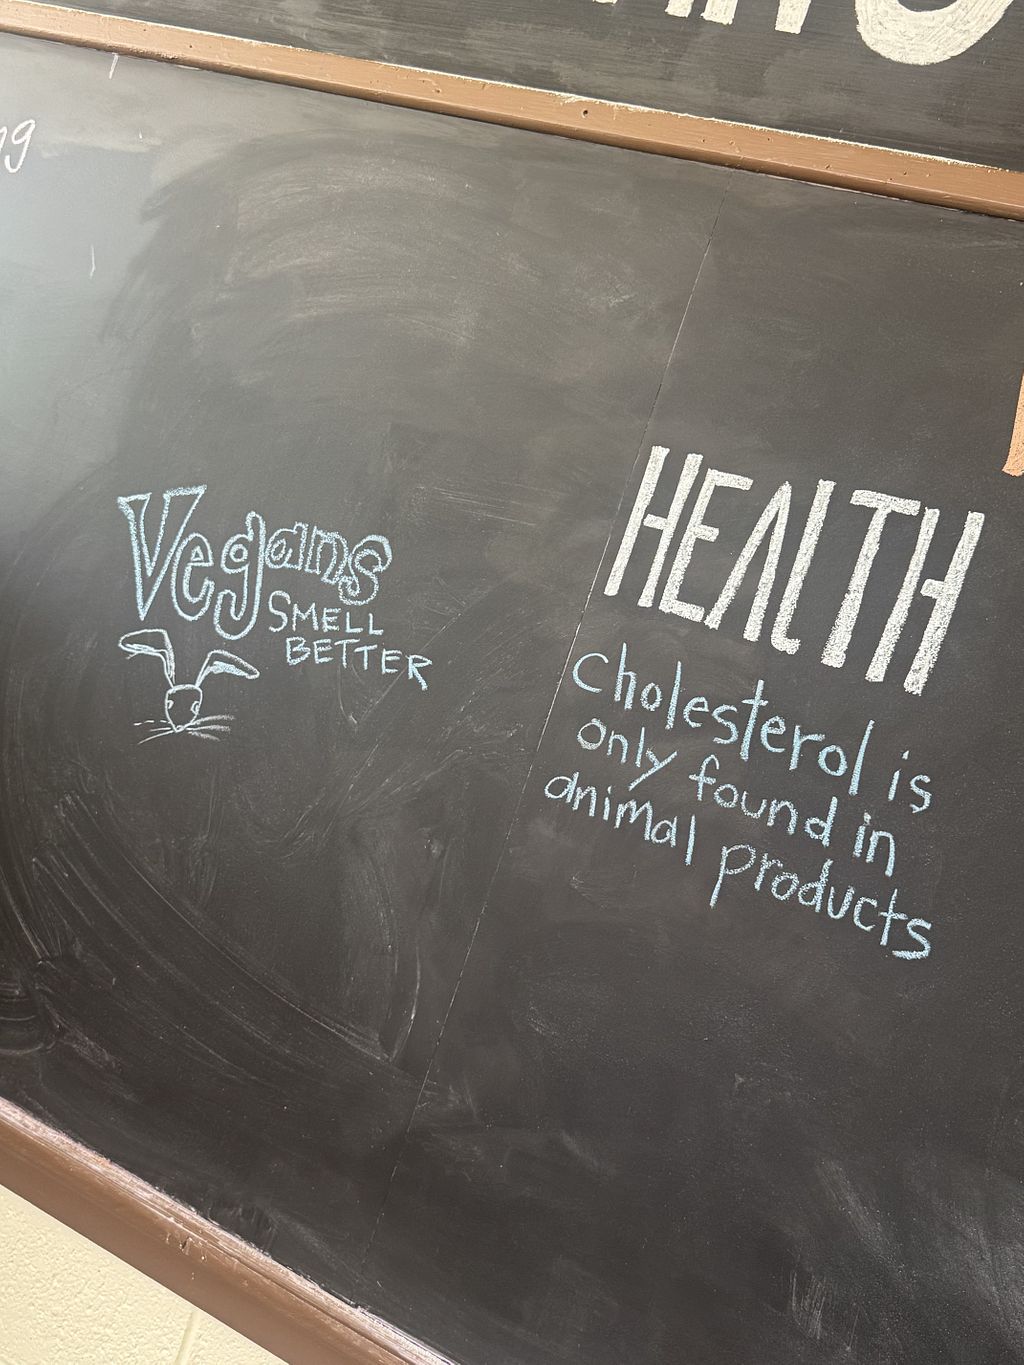 Vegans
SMELL
BETTER
HEALTH
Cholesterol is
only found in
animal products